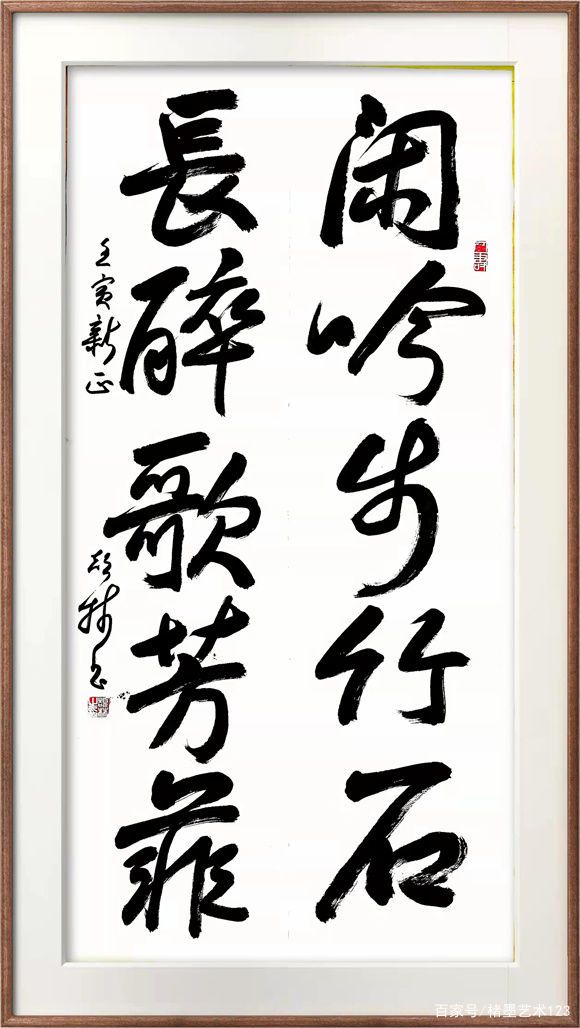 闲吟步竹石
長醉歌芳菲
壬寅新正
百家号/楮墨艺术123